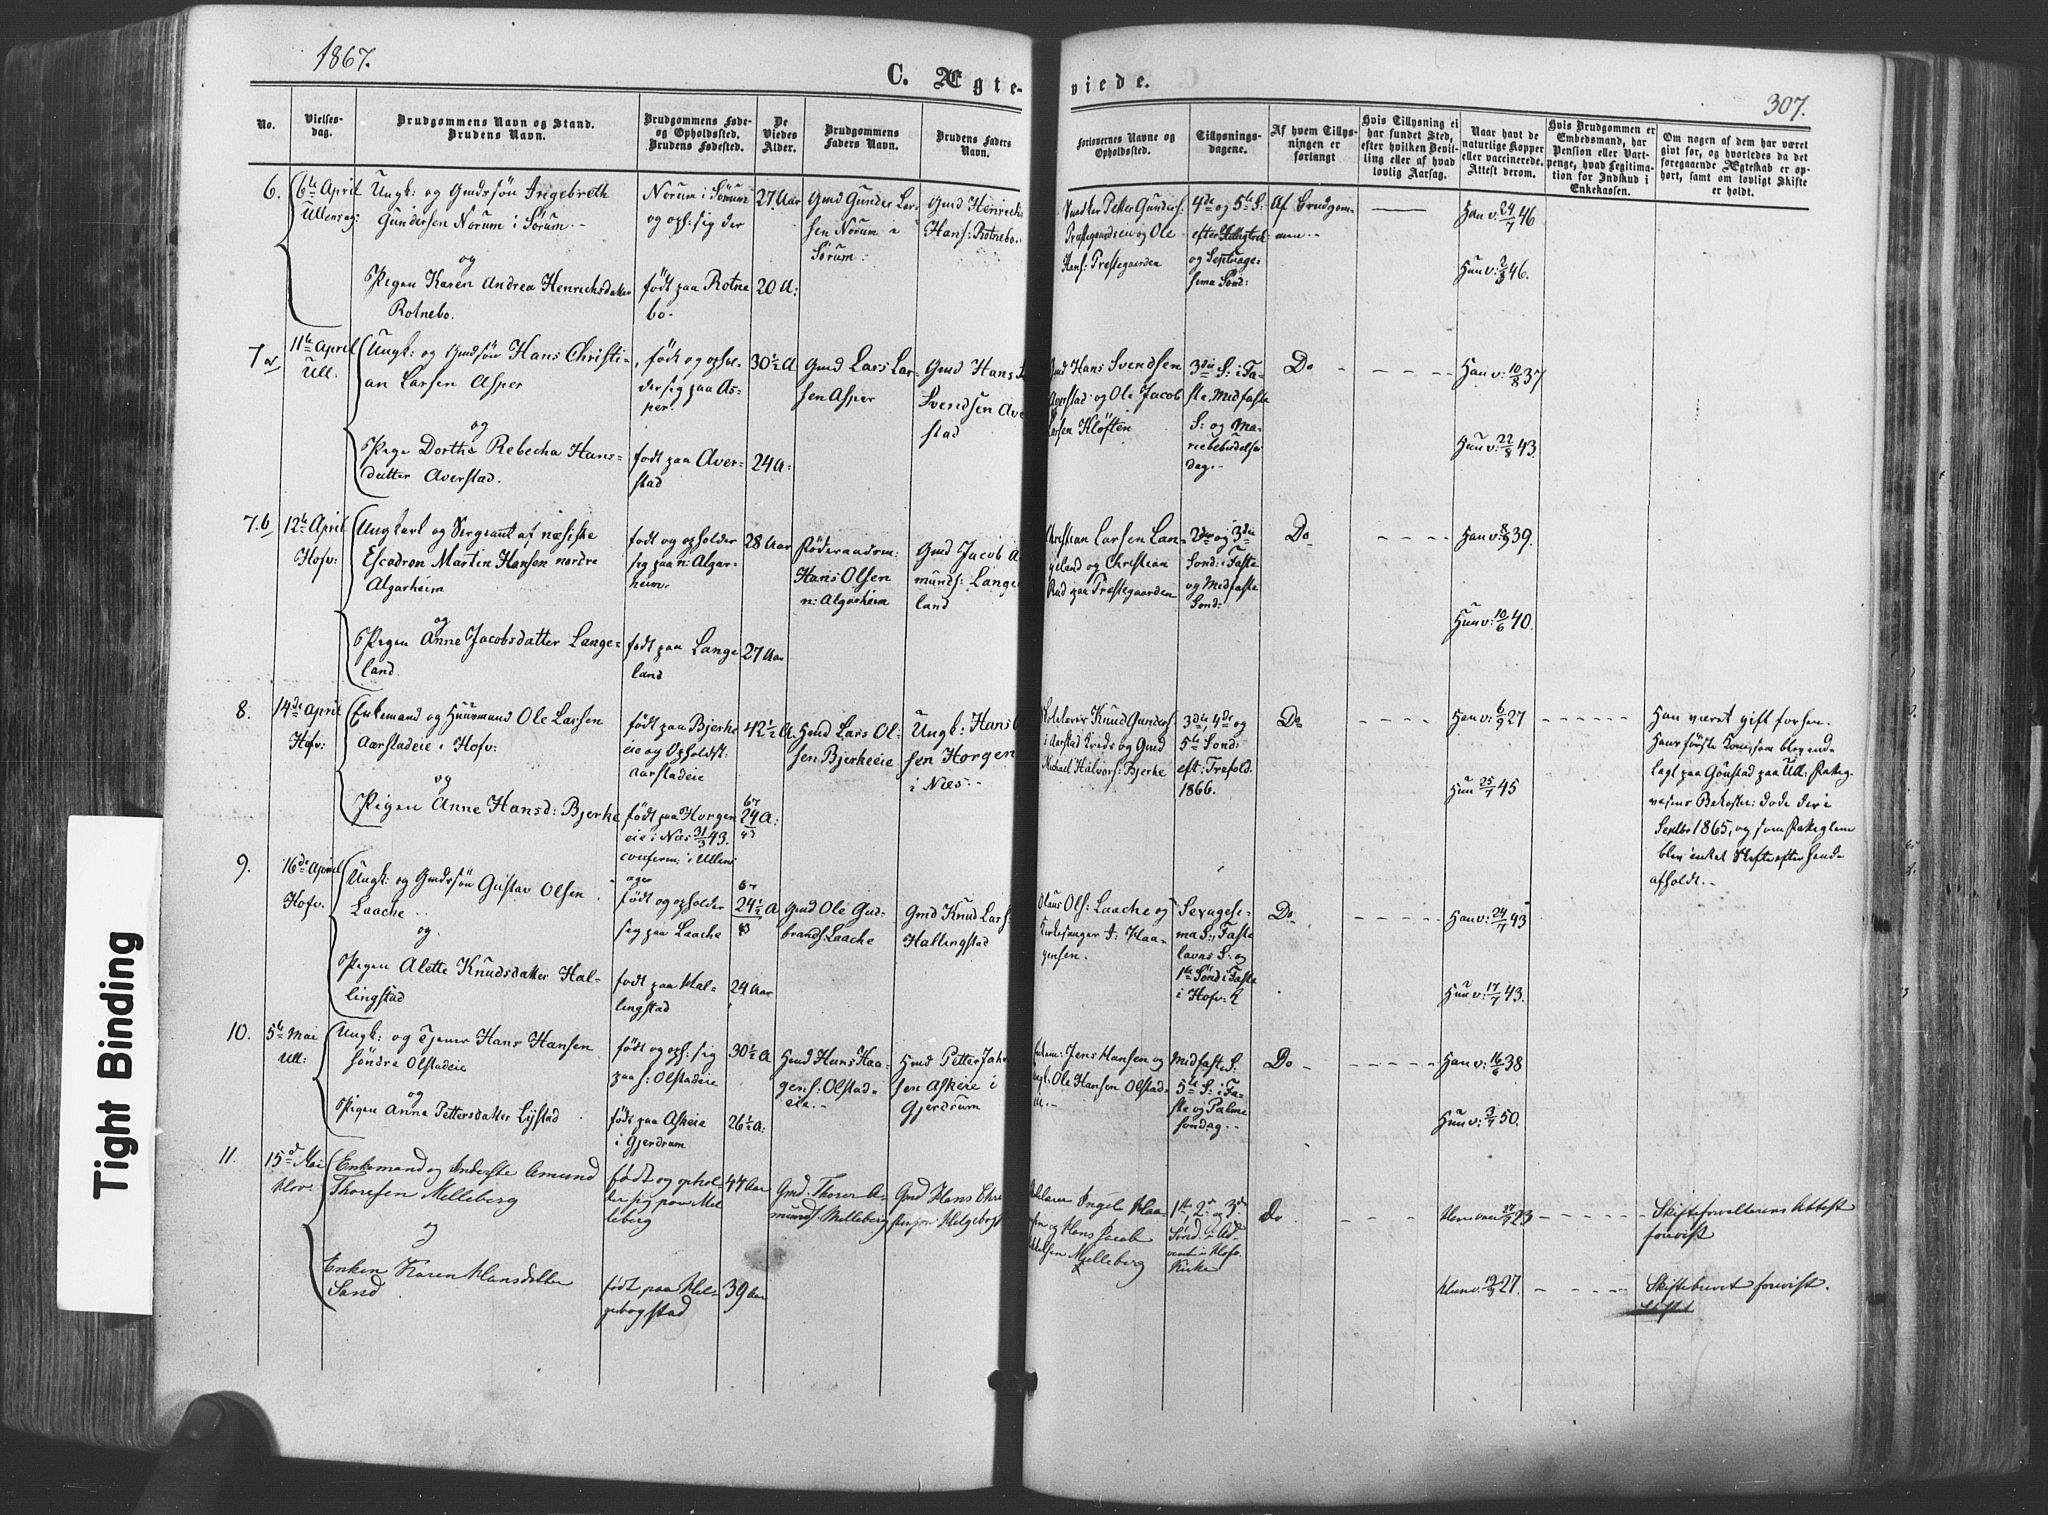 1867.
307.
C. Ægte-
viede.
No.
Vielses-
dag.
Brudgommens Navn og Stand.
Brudens Navn.
Brudgommens Føde-
og Opholdssted.
Brudens Fødested.
De
Viedes
Alder.
Brudgommens
Faders Navn.
Brudens Faders
Navn.
Forlovernes Navne og
Opholdssted.
Tillysnings-
dagene.
Af hvem Tillys-
ningen er
forlangt
Hvis Tillysning ei
har fundet Sted,
efter hvilken Bevil-
ling eller af hvad
lovlig Aarsag.
Naar havt de
naturlige Kopper
eller vaccinerede.
Attest derom.
Hvis Brudgommen er
Embedsmand, har
Pension eller Vart-
penge, hvad Legitima-
tion for Indskud i
Enkekassen.
Om nogen af dem har været
givt før, og hvorledes da det
foregaaende Ægteskab er op-
hørt, samt om lovligt Skifte
er holdt.
6.
6te April
Ullensag:
Ungk: og Gmdssøn Ingebreth
Gundersen Norum i Sørum
og
Pigen Karen Andrea Henrichsdatter
Rotnebo.
Norum i Sørum
og oph: sig der
født paa Rotne
bo.
27 Aar
20 A:
Gmd Gunder Lar-
sen Norum i
Sørum
Gmd Henrich
Hans: Rotnebo.
Petter Gunders:
Præstegaardsen og Ole
Hans: Præstegaarden
4de og 5te S:
efter Helligtrek
og Septuage-
sima Sønd:
Af Brudgom-
men
Han v: 24/7 46
Hun v: 2/8 46.
7 a
11te April
Ull.
Ungk: og Gmdssøn Hans Christi-
an Larsen Asper
og
Pige Dorthe Rebecha Hans-
datter Averstad.
født og ophol-
der sig paa As-
per.
født paa Aver-
stad
30½ A
24 A:
Gmd Lars Lar-
sen Asper
Gmd Hans
Svendsen Ave
stad
Gmd Hans Svendsen
Averstad og Ole Jacob
Larsen Kløften
3die S: i Fa-
ste, Midfaste
S: og Ma-
riebebudelses
dag.
Do
Han v: 10/8 37
Hun v: 22/8 43.
7.b
12te April
Hofv:
Ungkarl og Sergeant af næsiske
Escadron Martin Hansen nordre
Algarheim
og
Pigen Anne Jacobsdatter Lange-
land.
født og opholder
sig paa n: Algar-
heim.
født paa Lange
land
28 Aar
27 Aar
Hans Olsen
n: Algarheim
Gmd Jacob A
munds: Lange
land
Christian Larsen Lan-
geland og Christian
Rud paa Præstegaarden
2den og 3die
Sond: i Faste
og Midfaste
Sond:
Do
Han v: 8/9 39.
Hun v: 10/6 40.
8.
14de April
Hofv:
Enkemand og Huusmand Ole Larsen
Aarstadeie i Hofv:
og
Pigen Anne Hansd: Bjerke
født paa Bjerke
eie og Opholdst:
Aarstadeie
født paa Horgen
eie i Næs 31/3 43.
conferm: i Ullens
ager
42½ A.
24 A:
Hmd Lars Ol-
sen Bjerkeeie
Ungk: Hans
sen Horgen
i Næs.
Knud Gunders
i Aarstad Kreds og Gmd
Michael Halvors: Bjerke
3die, 4de og
5te Sond:
eft: Trefold.
1866.
Do
Han v: 6/9 27
Hun 25/7 45
Han været gift før hen.
Hans første Kone, som blev und-
lagt paa Gønstad paa Ull: Fattig-
væsens Bekostn: døde der i
Septbr 1865, og som Fattiglem
blev intet Skifte efter hende
afholdt.
9.
16de April
Hofv.
Ungk: og Gmdssøn Gustav Olsen
Laache
og
Pigen Alette Knudsdatter Hal-
lingstad
født og opholder
sig paa Laache
født paa Hal-
lingstad
24½ A
24 Aar
Gmd Ole Gud-
brands: Laache
Gmd Knud Lars
Hallingstad
Olaus Ols: Laache og
Kirkesanger A: Haa-
gensen.
Sexagesi-
ma S:, Faste
lavns S: og
1ste Sønd: i Faste
i Hofv: K
Do
Han v: 24/7 43
Hun v: 17/7 43.
10.
5te Mai
Ull:
Ungk: og Tjener Hans Hansen
søndre Olstadeie
og
Pigen Anne Pettersdatter Lystad
født og oph: sig
paa s: Olstadeie
født paa Askeie
i Gjerdrum
30½ A
26½ A:
Hmd Hans Haa-
gens: Olstad-
eie.
Hmd Petter Joh
sen Askeie i
Gjerdrum
Jens Hansen og
Ole Hansen Olstad-
eie.
Midfaste S:
5te S: i Fa-
ste og Palme
søndag.
Do
Han v: 16/6 38
Hun v: 3/7 50.
11.
15de Mai
Hov.
Enkemand og Inderste Amund
Thoresen Melleberg
og
Enken Karen Hansdatter
Sand
født og ophol
der sig paa Mel
leberg
født paa Hel-
gebostad
44 Aar
39 Aar
Gmd. Thorer A-
munds. Melleberg
Gmd Hans Chri
stensen Helgebost
Ingel Haa-
og Hans Jacob
Melleberg
1ste, 2n og 3de
Sønd. i Ad-
vent i Hofv.
Kirke
Do
Han v 23
Hun v. 19/9 27.
Skifteforvalterens Attest
forevist
Skiftebrevet forevist.
Tight Binding